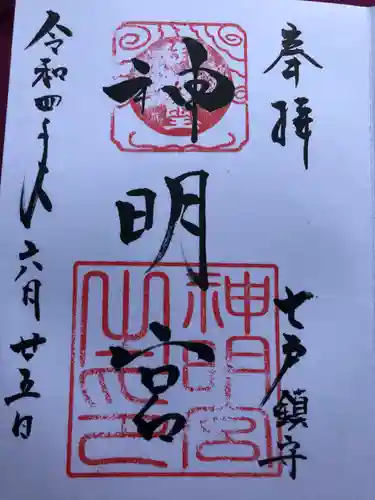 奉拝
七戸鎮守
神明宮
神明宮之印
令和四年八月廿五日